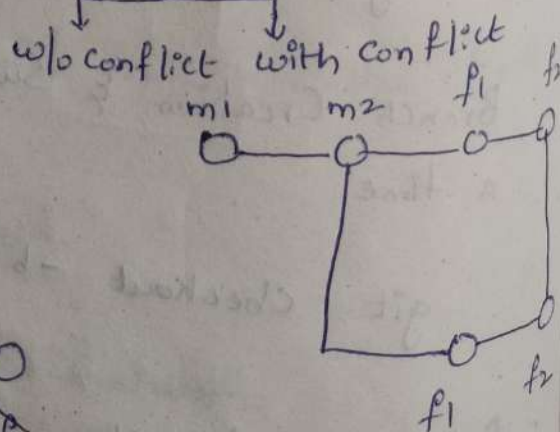 w/o conflict with conflict
m1 m2 f1 f2
f1 f2